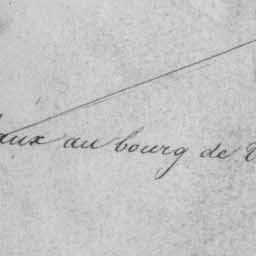 aux au bourg de